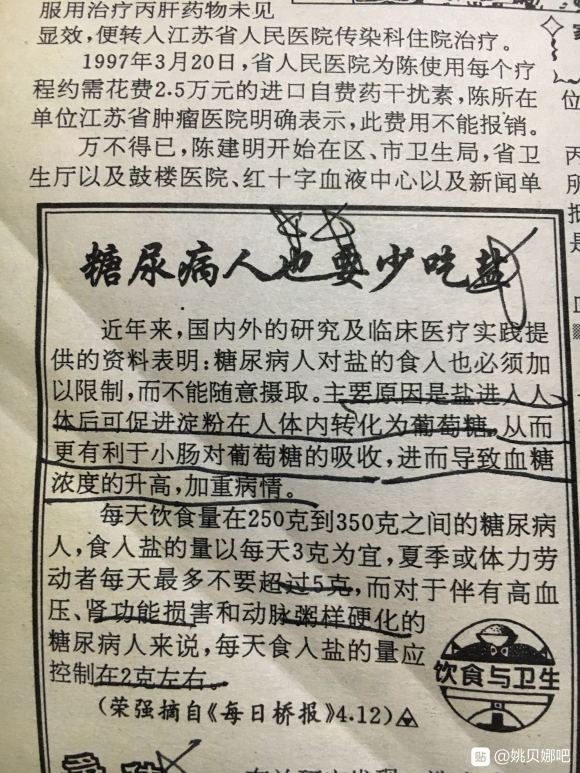 服用治疗丙肝药物未见
显效，便转入江苏省人民医院传染科住院治疗。
1997年3月20日，省人民医院为陈使用每个疗
程约需花费2.5万元的进口自费药干扰素，陈所在
单位江苏省肿瘤医院明确表示，此费用不能报销。
万不得已，陈建明开始在区、市卫生局，省卫
生厅以及鼓楼医院、红十字血液中心以及新闻单
糖尿病人也要少吃盐
近年来，国内外的研究及临床医疗实践提
供的资料表明：糖尿病人对盐的食入也必须加
以限制，而不能随意摄取。主要原因是盐进入人
体后可促进淀粉在人体内转化为葡萄糖，从而
更有利于小肠对葡萄糖的吸收，进而导致血糖
浓度的升高，加重病情。
每天饮食量在250克到350克之间的糖尿病
人，食入盐的量以每天3克为宜，夏季或体力劳
动者每天最多不要超过5克，而对于伴有高血
压、肾功能损害和动脉粥样硬化的
糖尿病人来说，每天食入盐的量应
控制在2克左右。
饮食与卫生
（荣强摘自《每日桥报》4.12）
位
丙
所
报
是
贴 @姚贝娜吧